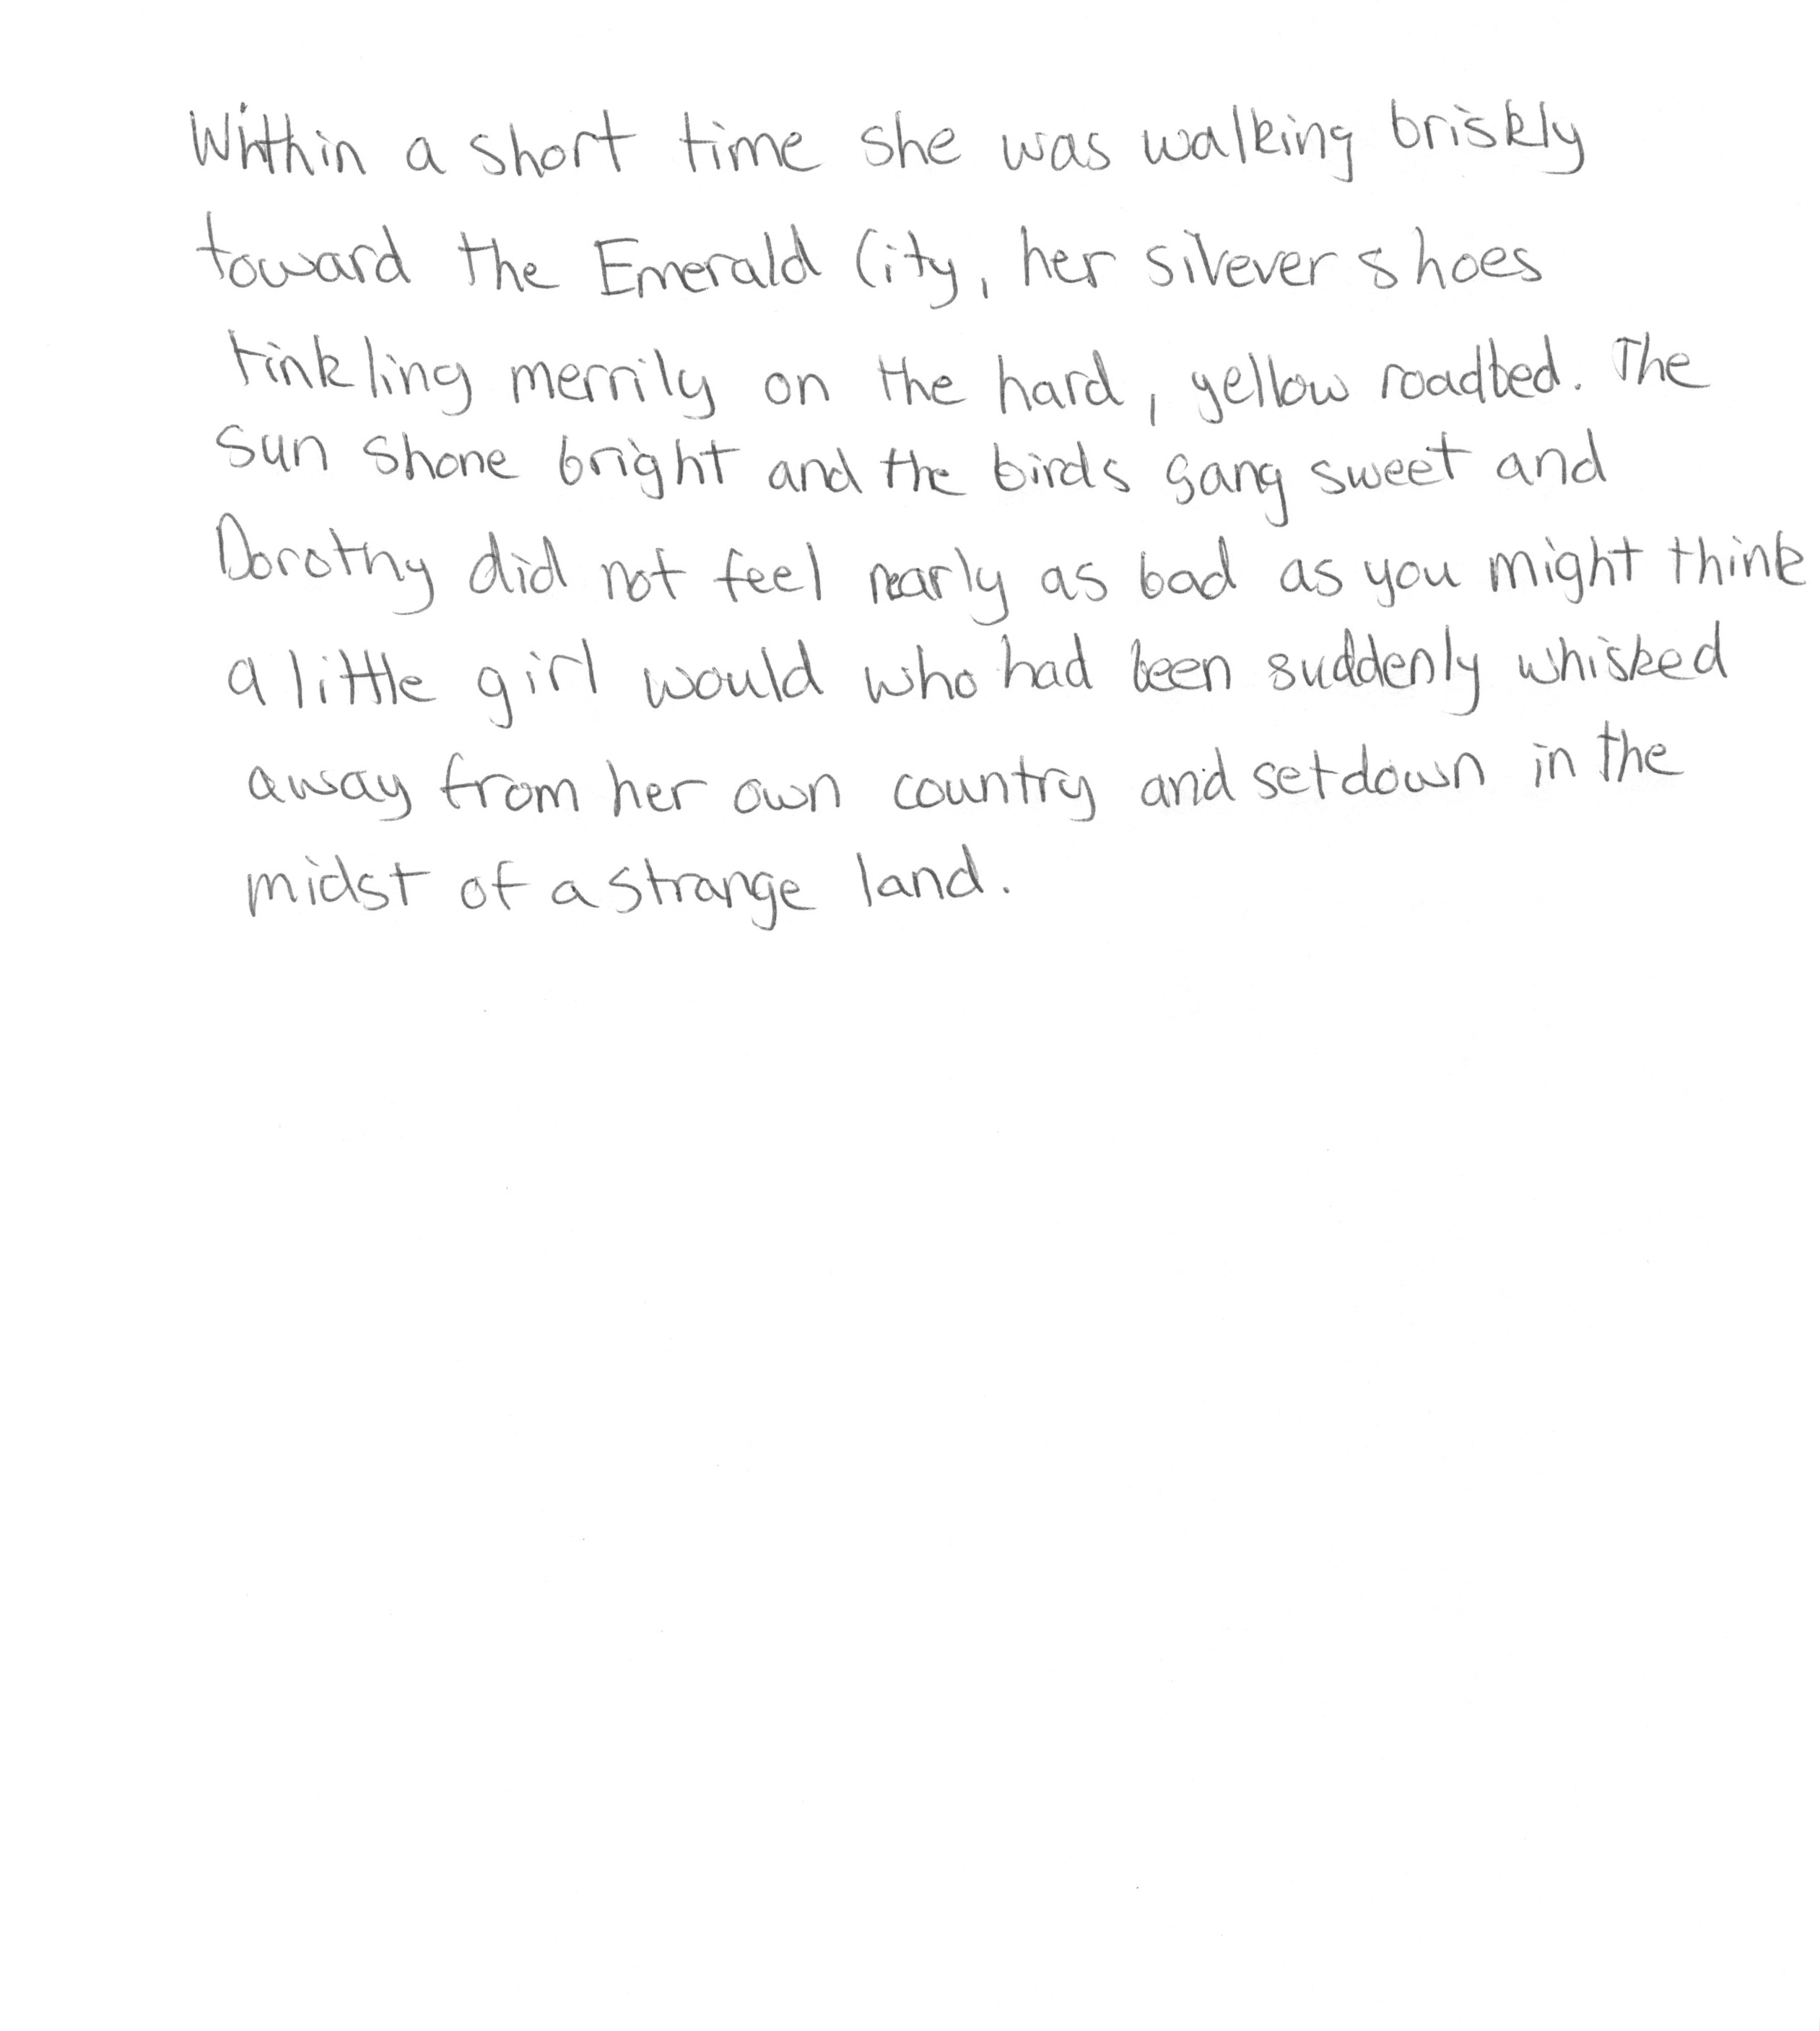 Within a short time she was walking briskly
toward the Emerald City, her silever shoes
tinkling merrily on the hard, yellow roadbed. The
sun shone bright and the birds sang sweet and
Dorothy did not feel nearly as bad as you might think
a little girl would who had been suddenly whisked
away from her own country and set down in the
midst of a strange land.